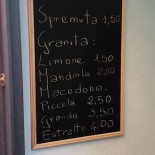 Spremuta 1,50
Granita:
Limone 1,50
Mandorla 2,00
Macedonia:
Piccola 2,50
Grande 3,50
Estratto 4,00